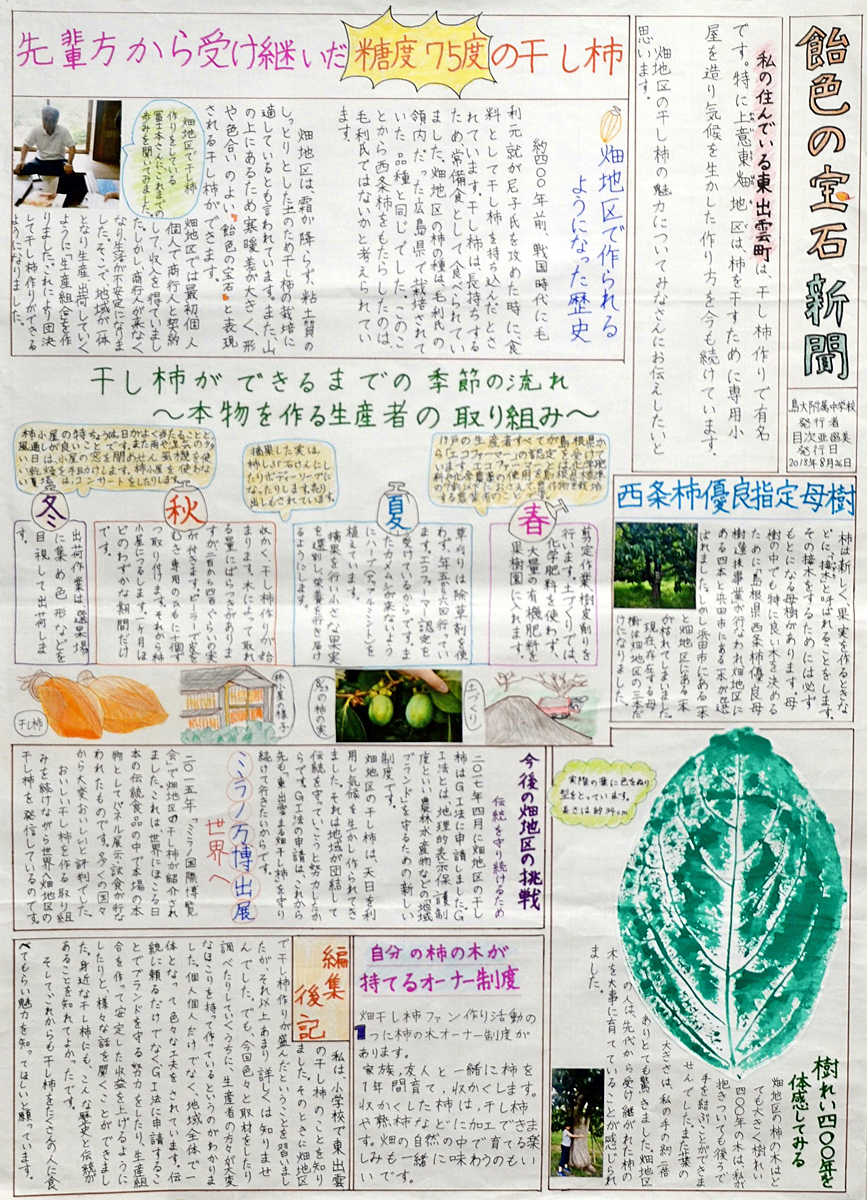 飴色の宝石新聞
島大附属中学校
発行者
目次亜瑠美
発行日
2018年8月26日
私の住んでいる東出雲町は、干し柿作りで有名
です。特に上意東畑地区は柿を干すために専用小
屋を造り気候を生かした作り方を今も続けています。
畑地区の干し柿の魅力についてみなさんにお伝えしたいと
思います。
先輩方から受け継いだ糖度75度の干し柿
畑地区で作られる
ようになった歴史
約四〇〇年前、戦国時代に毛
利元就が尼子氏を攻めた時に、食
料として干し柿を持ち込んだとさ
れています。干し柿は長持ちする
ため常備食として食べられてい
ました。畑地区の柿の種は毛利氏の
領内だった広島県で栽培されて
いた品種と同じでした。このこ
とから西条柿をもたらしたのは
毛利氏ではないかと考えられてい
ます。
畑地区は、霜が降らず、粘土質の
しっとりとした土のため干し柿の栽培に
適しているとも言われています。また、山
の上にあるため寒暖差が大きく、形
や色合いのよい"飴色の宝石"と表現
される干し柿ができます。
畑地区で干し柿
作りをしている
冨士本さんにこれまでの
歩みを聞いてみました。
畑地区では最初個人
個人で商行人と契約
して収入を得ていまし
た。しかし、商行人が来なく
なり生活が不安定になりま
した。そこで、地域が一体
となり生産出荷していく
ように生産組合を作
りました。これにより団決
して干し柿作りができる
ようになりました。
干し柿ができるまでの季節の流れ
〜本物を作る生産者の取り組み〜
摘果した実は、
柿しぶ石けんにし
たりボディーソープに
なったりします。売り
出しもされています。
春
剪定作業、樹皮削りを
行います。土づくりでは、
化学肥料を使わず、
大量の有機肥料を
果樹園に入れます。
夏
草刈りは除草剤を使
わず、年五回ほど行ってい
ます。エコファーマー認定を
受けているからです。ま
たカメムシが来ないよう
にハーブ(アップルミント)を
植えています。
摘果を行い小さな果実
を選別し栄養を行き届け
るようにします。
秋
収かく、干し柿作りが始
まります。木によって取れ
る量にばらつきがありま
すが二百から四百くらいの実
が付きます。ピーラーで皮を
むき専用のひもに十個ず
つ取り付けます。それから柿
小屋につるします。一ヶ月ほ
どのわずかな期間だけ
です。
冬
出荷作業は、選果場
に集め色形などを
目視して出荷しま
す。
干し柿
柿小屋の様子
夏の柿の実
土づくり
西条柿優良指定母樹
柿は新しく果実を作るときな
どに、接木と呼ばれることをします。
その接木をするためには必ず
もとになる母樹があります。母
樹の中でも特に良い木を決める
ために「島根県西条柿優良母
樹選抜事業」が行なわれ畑地区に
ある四本と浜田市にある一本が選
ばれました。しかし浜田市にある一本
が枯れてしまいました。
現在存在する母
樹は畑地区の三本だ
けになりました。
今後の畑地区の挑戦
伝統を守り続けるため
二〇一七年四月に畑地区の干し
柿はGI法に申請しました。G
I法とは地理的表示保護制
度といい農林水産物などの「地域
ブランド」を守るための新しい
制度です。
畑地区の干し柿は、天日を利
用し気候を生かし作られてき
ました。それは地域が団結して
伝統を守っていこうと努力したか
らです。GI法の申請は、これから
先も「東出雲まる畑干し柿」を守り
続けて行きたいからです。
ミラノ万博出展
世界へ
二〇一五年、「ミラノ国際博覧
会」で畑地区の干し柿が紹介され
ました。これは世界にほこる日
本の伝統食品の中で本場の本
物としてパネル展示、試食が行な
われたものです。多くの国々
から大変おいしいと評判でした。
おいしい干し柿を作る取り組
みを続けながら世界へ畑地区の
干し柿を発信しているのです。
実際の葉に色をぬり
型をとっています。
長さは約34cm
樹れい四〇〇年を
体感してみる
畑地区の柿の木はと
ても大きく樹れい
四〇〇年の木は私が
抱きついても後ろで
手を結ぶことができま
せんでした。また葉の
大きさは私の手の約一倍
ありとても驚きました。畑地区
の人は、先代から受け継がれた柿の
木を大事に育てていることが感じられ
ました。
自分の柿の木が
持てるオーナー制度
畑干し柿ファン作り活動の
1つに柿の木オーナー制度が
あります。
家族、友人と一緒に柿を
1年間育て、収かくします。
収かくした柿は、干し柿
や熟柿などに加工できま
す。畑の自然の中で育てる楽
しみも一緒に味わうのもい
いです。
編集後記
私は、小学校で東出雲
の干し柿のことを知り
ました。そのときに畑地区
で干し柿作りが盛んだということを習いまし
たが、それ以上あまり詳しくは知りませ
んでした。でも、今回色々と取材をしたり
調べたりしていくうちに、生産者の方々が大変
なほこりを持って作っているというのがわかりま
した。個人個人だけでなく、地域全体で一
体となって色々な工夫をされています。伝
統に頼るだけでなくGI法に申請するこ
とでブランドを守る努力をしたり、生産組
合を作って安定した収益を上げるように
したりと、様々な話を聞くことができまし
た。身近な干し柿にも、こんな歴史と伝統が
あることを知れてよかったです。
そして、これからも干し柿をたくさんの人に食
べてもらい魅力を知ってほしいと願っています。